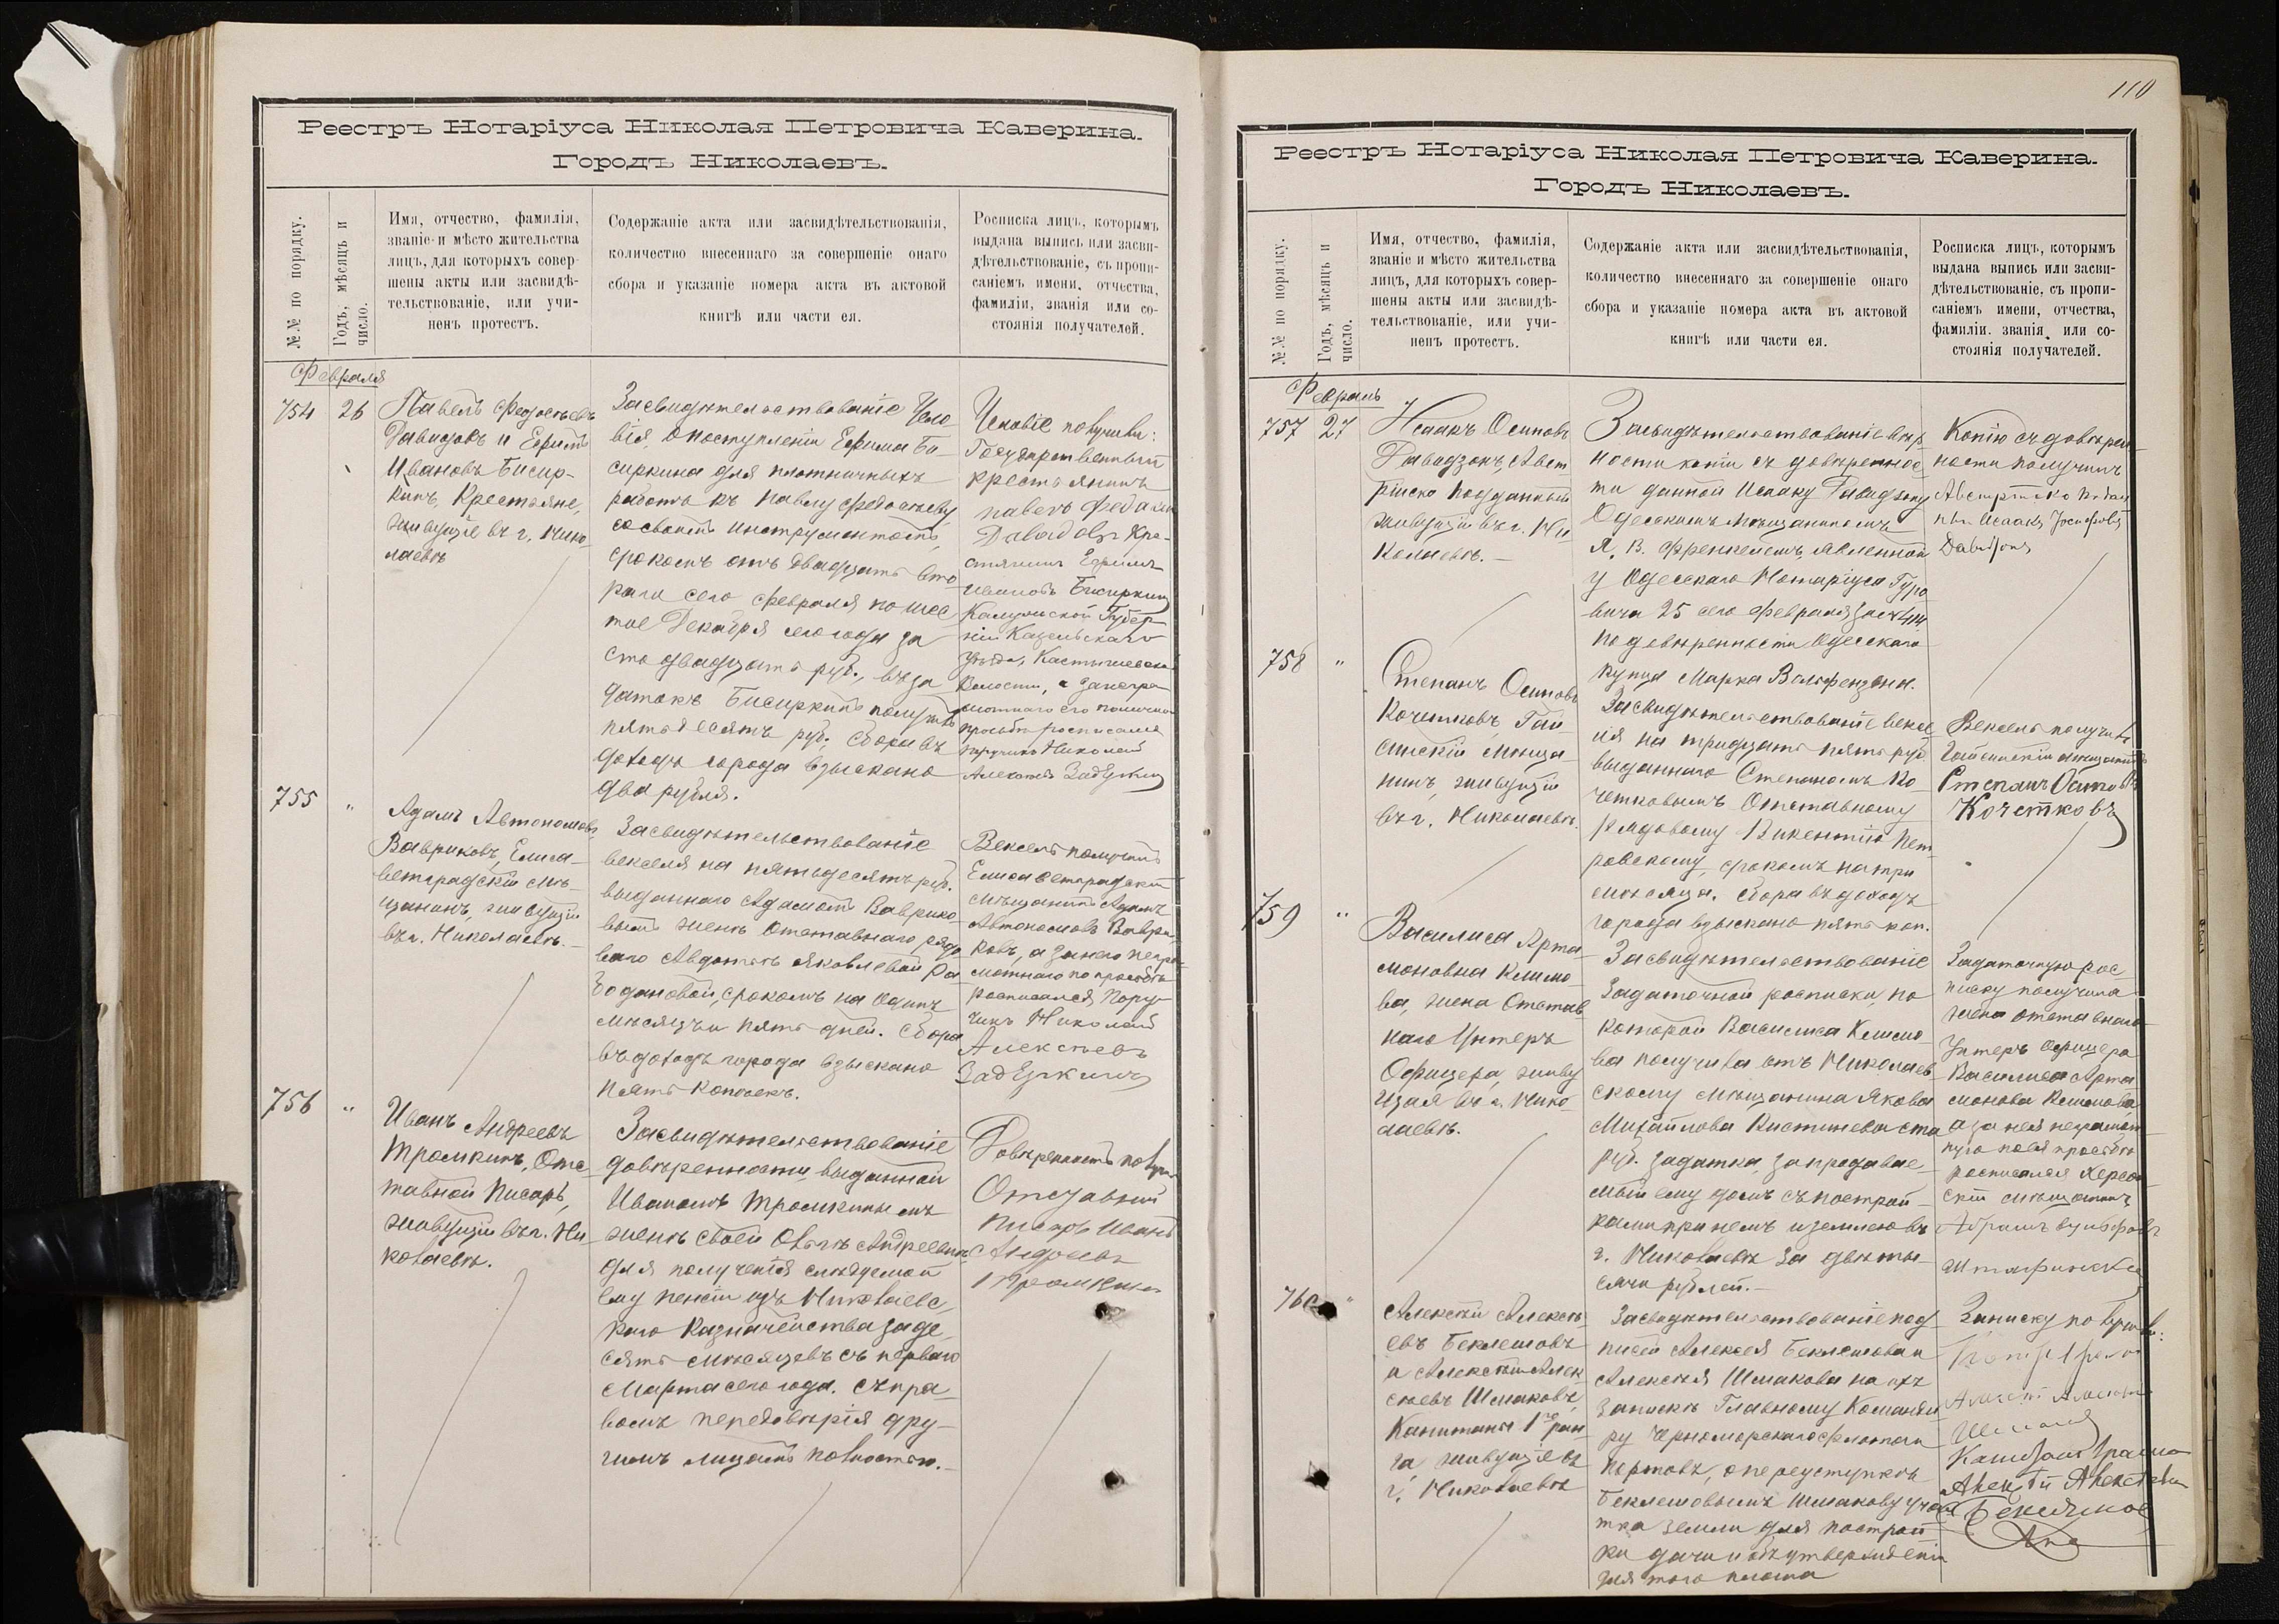 Реестръ Нотаріуса Николая Петровича Каверина.
Городъ Николаевъ.
№№ по порядку.
Годъ, мѣсяцъ и
число.
Имя, отчество, фамилія,
званіе и мѣсто жительства
лицъ, для которыхъ совер-
шены акты или засвидѣ-
тельствованіе, или учи-
ненъ протестъ.
Содержаніе акта или засвидѣтельствованія,
количество внесеннаго за совершеніе онаго
сбора и указаніе номера акта въ актовой
книгѣ или части ея.
Росписка лицъ, которымъ
выдана выпись или засви-
дѣтельствованіе, съ пропи-
саніемъ имени, отчества,
фамиліи, званія или со-
стоянія получателей.
Февраля
754
26
Павелъ Федосѣевъ
Давидовъ и Ефимъ
Ивановъ Бисир-
кинъ, Крестьяне,
живущіе въ г. Нико-
лаевѣ
Засвидѣтельствованіе Усло-
вія о поступленіи Ефима Би-
сиркина для плотничныхъ
работъ къ Павлу Федосѣеву
со своимъ инструментомъ,
срокомъ отъ двадцать вто-
раго сего Февраля по шес-
тое Декабря сего года за
сто двадцать руб., въ за
датокъ Бисиркинъ получилъ
пятьдесятъ руб. Сбора въ
доходъ города взыскано
два рубля.
Условіе получили:
Государственный
крестьянинъ
Павелъ
Давадовъ Кре-
стянинъ Ефимъ
Ивановъ Бисиркинъ
Калужской Губер-
ніи Козельскаго
Уѣзда,
Волости, а за негра-
мотнаго его по личной
просьбѣ росписался
поручикъ Николай
Алексѣевъ
755
"
Адамъ Автономовъ
Вавриковъ, Елиса-
ветградскій мѣ-
щанинъ, живущій
въ г. Николаевѣ.
Засвидѣтельствованіе
векселя на пятьдесятъ руб.
выданнаго Адамомъ Вавриковымъ
женѣ Отставнаго рядо
ваго Авдотьѣ Яковлевой
срокомъ на одинъ
мѣсяцъ и пять дней. Сбора
въ доходъ города взыскано
пять копѣекъ.
Вексель получилъ
Елисаветградскій
мѣщанинъ Адамъ
Автономовъ Ваври-
ковъ, а за него негра-
мотнаго по просьбѣ
росписался Пору-
чикъ Николай
Алексѣевъ
756
"
Иванъ Андреевъ
Тромкинъ, Отс-
тавной Писарь,
живущій въ г. Ни-
колаевѣ.
Засвидѣтельствованіе
довѣренности, выданной
Иваномъ Тромкинымъ
женѣ своей Ольгѣ Андреевнѣ
для полученія слѣдуемой
ему пенсіи изъ Николаевс-
каго Казначейства за де-
сять мѣсяцевъ съ перваго
Марта сего года. Съ пра-
вомъ передовѣрія дру-
гимъ лицамъ полностью.
Довѣренность получилъ
Отставний
писарь Иванъ
Андреевъ
Тромкинъ
110
Реестръ Нотаріуса Николая Петровича Каверина.
Городъ Николаевъ.
№№ по порядку.
Годъ, мѣсяцъ и
число.
Имя, отчество, фамилія,
званіе и мѣсто жительства
лицъ, для которыхъ совер-
шены акты или засвидѣ-
тельствованіе, или учи-
ненъ протестъ.
Содержаніе акта или засвидѣтельствованія,
количество внесеннаго за совершеніе онаго
сбора и указаніе номера акта въ актовой
книгѣ или части ея.
Росписка лицъ, которымъ
выдана выпись или засви-
дѣтельствованіе, съ пропи-
саніемъ имени, отчества,
фамиліи, званія или со-
стоянія получателей.
Февраль
757
27
Исаакъ Осиповъ
Давидзонъ, Авст
рійско подданный
живущій въ г. Ни
колаевѣ.
Засвидѣтельствованіе вѣр
ности копіи съ довѣреннос
ти данной Исааку Давидзону
Одесскимъ Мѣщаниномъ
Я. В. Френкелемъ, явленной
у Одесскаго Нотаріуса Гуро
вича 25 сего Февраля за №
по довѣренности Одесскаго
купца Марка Вольфензона.
Копію съ довѣрен-
ности получилъ
Австрійско подан
Исаакъ Іосифовъ
758
"
Степанъ Осиповъ
Кочетковъ, Гай
синскій мѣща-
нинъ, живущій
въ г. Николаевѣ.
Засвидѣтельствованіе вексе
ля на тридцать пять руб
выданнаго Степаномъ Ко-
четковымъ Отставному
рядовому Викентію Пет
ровскому, срокомъ на три
мѣсяца. Сбора въ доходъ
города взыскано пять коп.
Вексель получилъ
Гайсинскій мѣщанинъ
Степанъ Осиповъ
Кочетковъ
759
"
Василиса Арта-
моновна Климо-
ва, жена Отстав
наго Унтеръ
Офицера, живу
щая въ г. Нико-
лаевѣ.
Засвидѣтельствованіе
Задаточной росписки, по
которой Василиса Климо-
ва получила отъ Николаев-
скому мѣщанина Якова
Михайлова Кистинева ста
руб. задатка, за продавае-
мый ему домъ съ построй-
ками при немъ и землею въ
г. Николаевѣ за двѣ ты-
сячи рублей.
Задаточную рос-
писку получила
жена отставнаго
Унтеръ Офицера
Василиса Арта
монова Климова
а за нея неграмот
ную по ея просьбѣ
росписался Херсон-
скій мѣщанинъ
Абрамъ
760
"
Алексѣй Алексѣ
евъ Беклешовъ
и Алексѣй Алек-
сѣевъ Шмаковъ,
Капитаны 1го ран-
га, живущіе въ
г. Николаевѣ
Засвидѣтельствованіе под
писей Алексѣя Беклешова и
Алексѣя Шмакова на ихъ
запискѣ Главному Команди
ру Черноморскаго Флота и
портовъ, о переуступкѣ
Беклешовымъ Шмакову учас
тка земли для построй
ки дачи и объ утвержденіи
для того плана
Записку получили:
Алексѣй Алексѣевъ
Капитанъ 1 ранга
Алексѣй Алексѣевъ
Беклешовъ